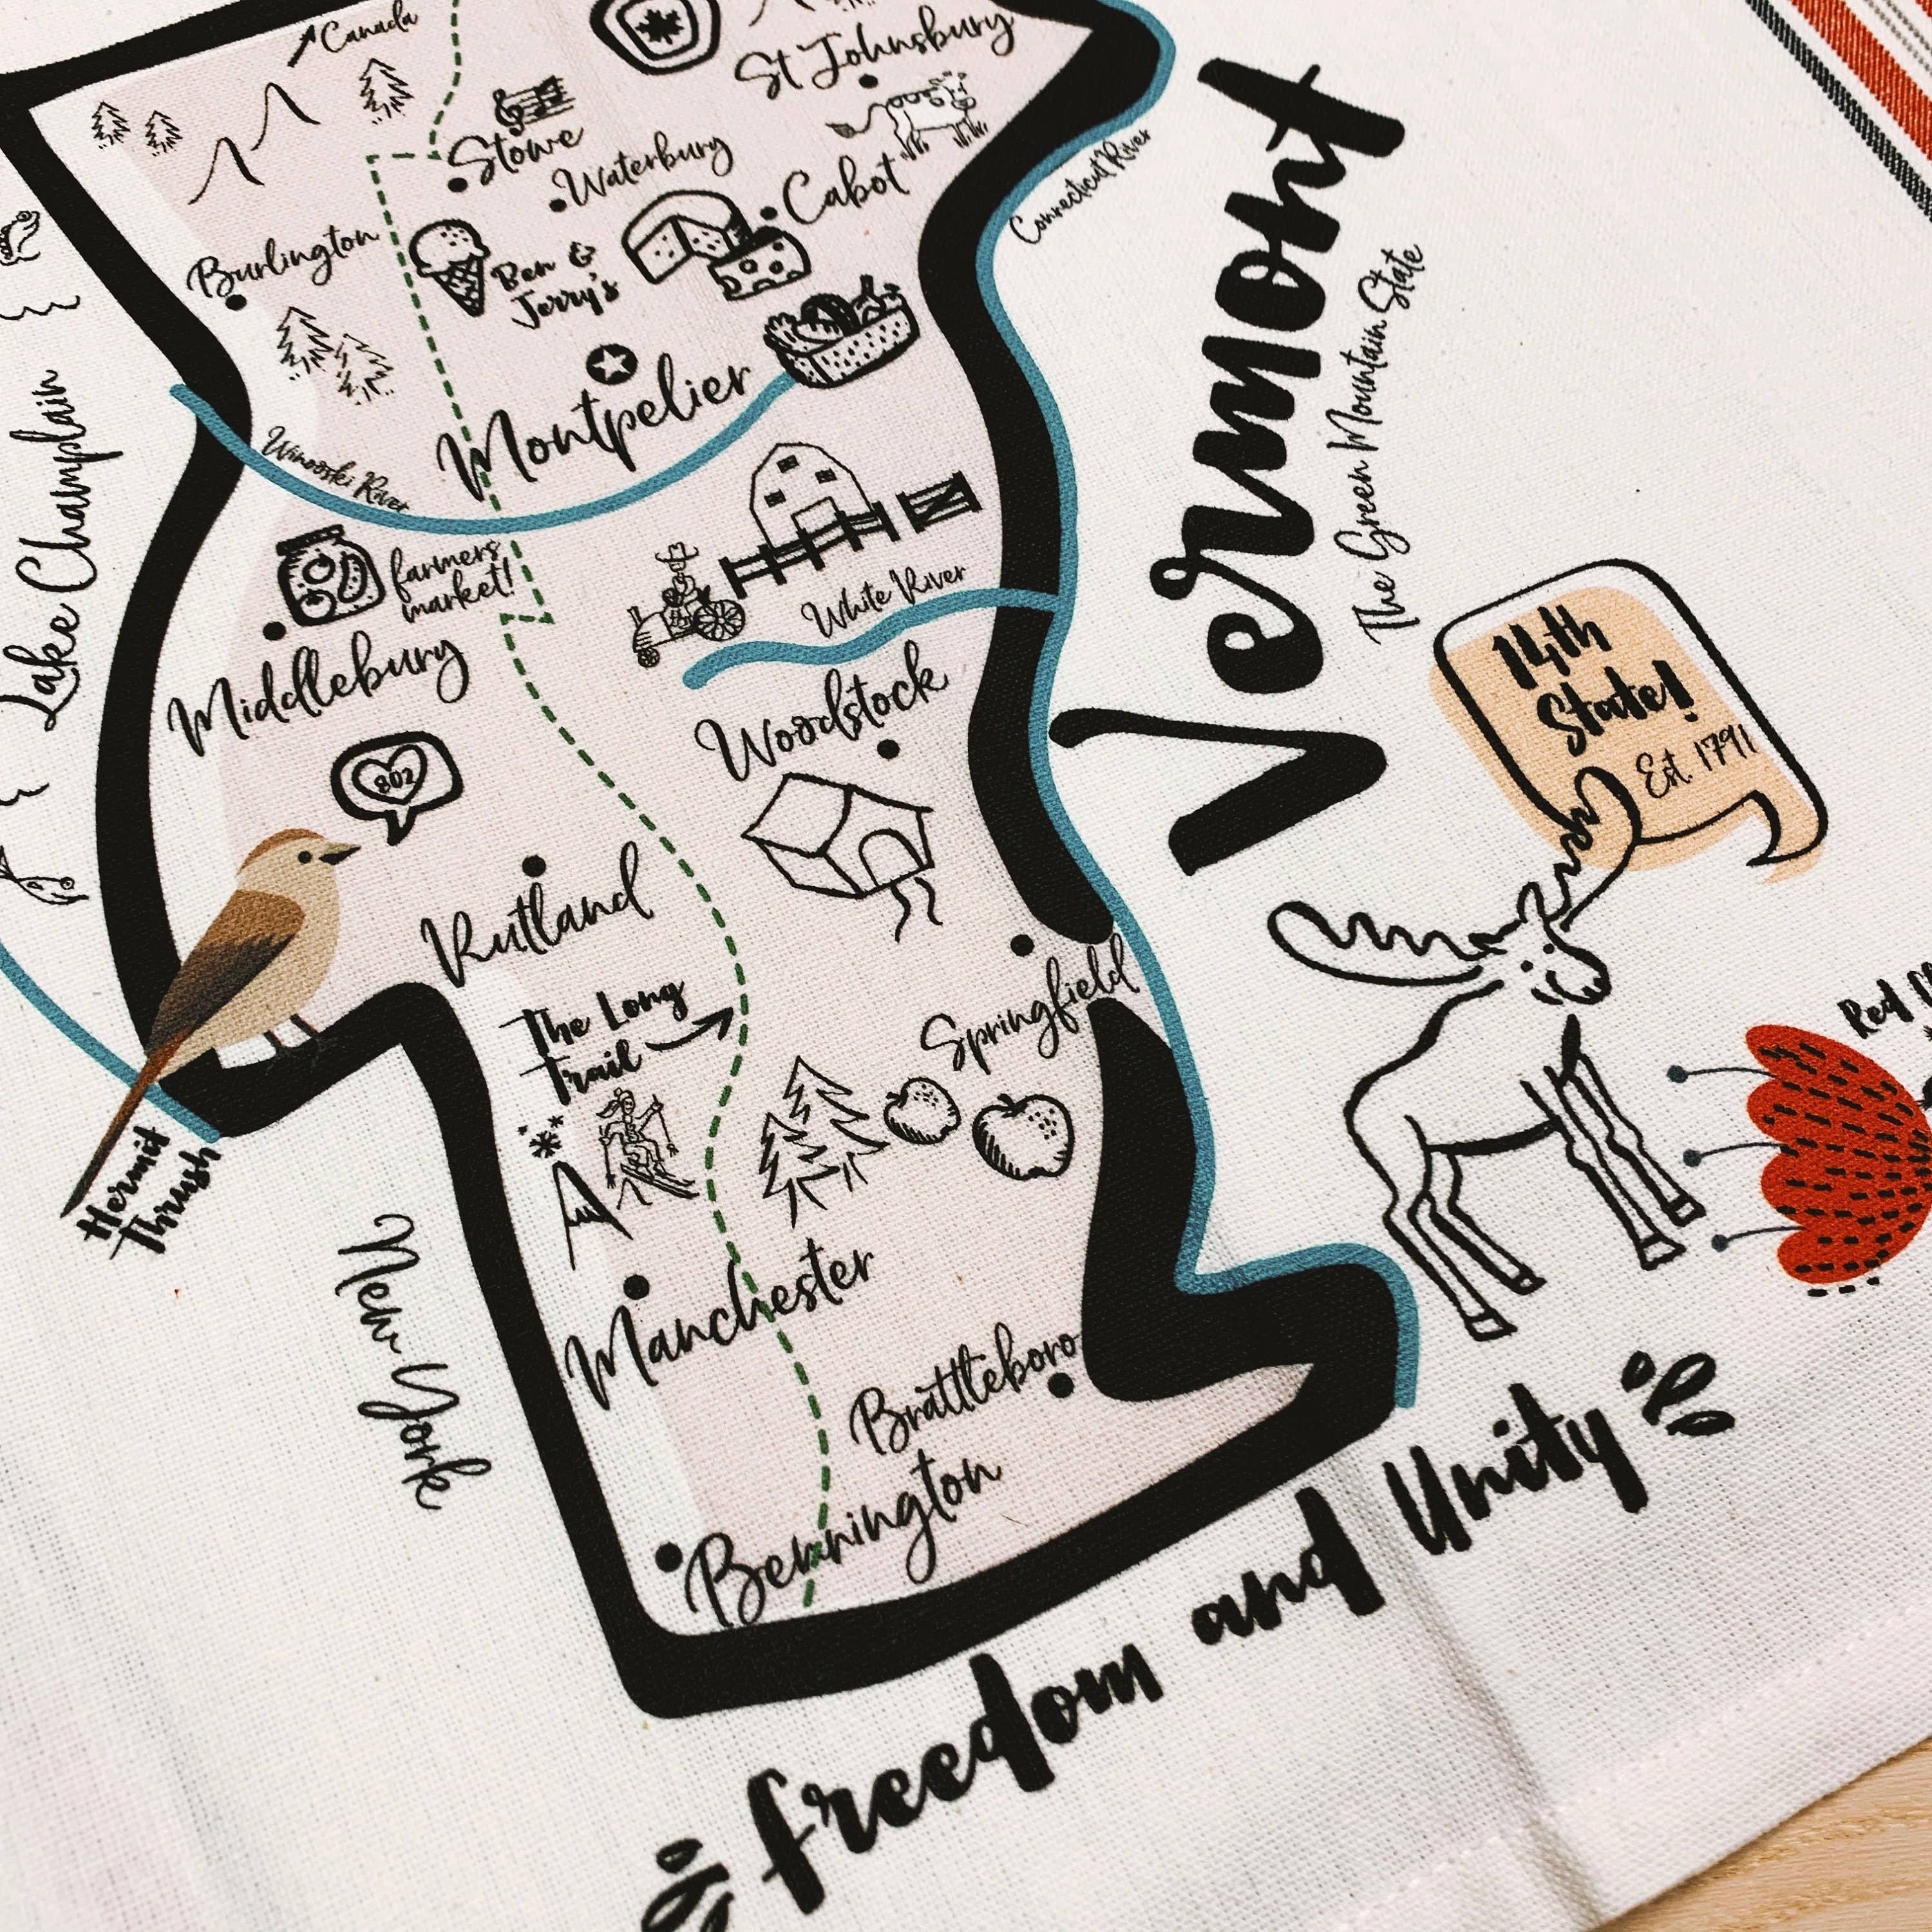 Canada
St Johnsbury
Stowe
Waterbury
Cabot
Connecticut River
Burlington
Ben &
Jerry's
Montpelier
Winooski River
Lake Champlain
farmers
market!
Middlebury
White River
Woodstock
802
Rutland
The Long
Trail
Springfield
Hermit
Thrush
New York
Manchester
Brattleboro
Bennington
Vermont
The Green Mountain State
14th
State!
Est. 1791
Red
freedom and Unity